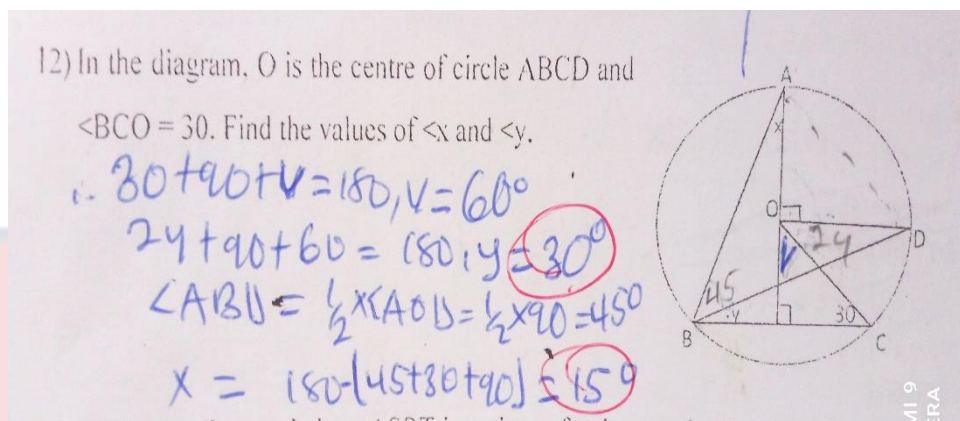 12) In the diagram, O is the centre of circle ABCD and
<BCO = 30. Find the values of <x and <y.
30+90+V=180, V=60°
2y+90+60 = 180, y=30°
<ABD = 1/2 x<AOD = 1/2 x90 =45°
X = 180-(45+30+90) = 15°
A
X
O
D
V
2y
45
y
30
B
C
MI 9
ERA